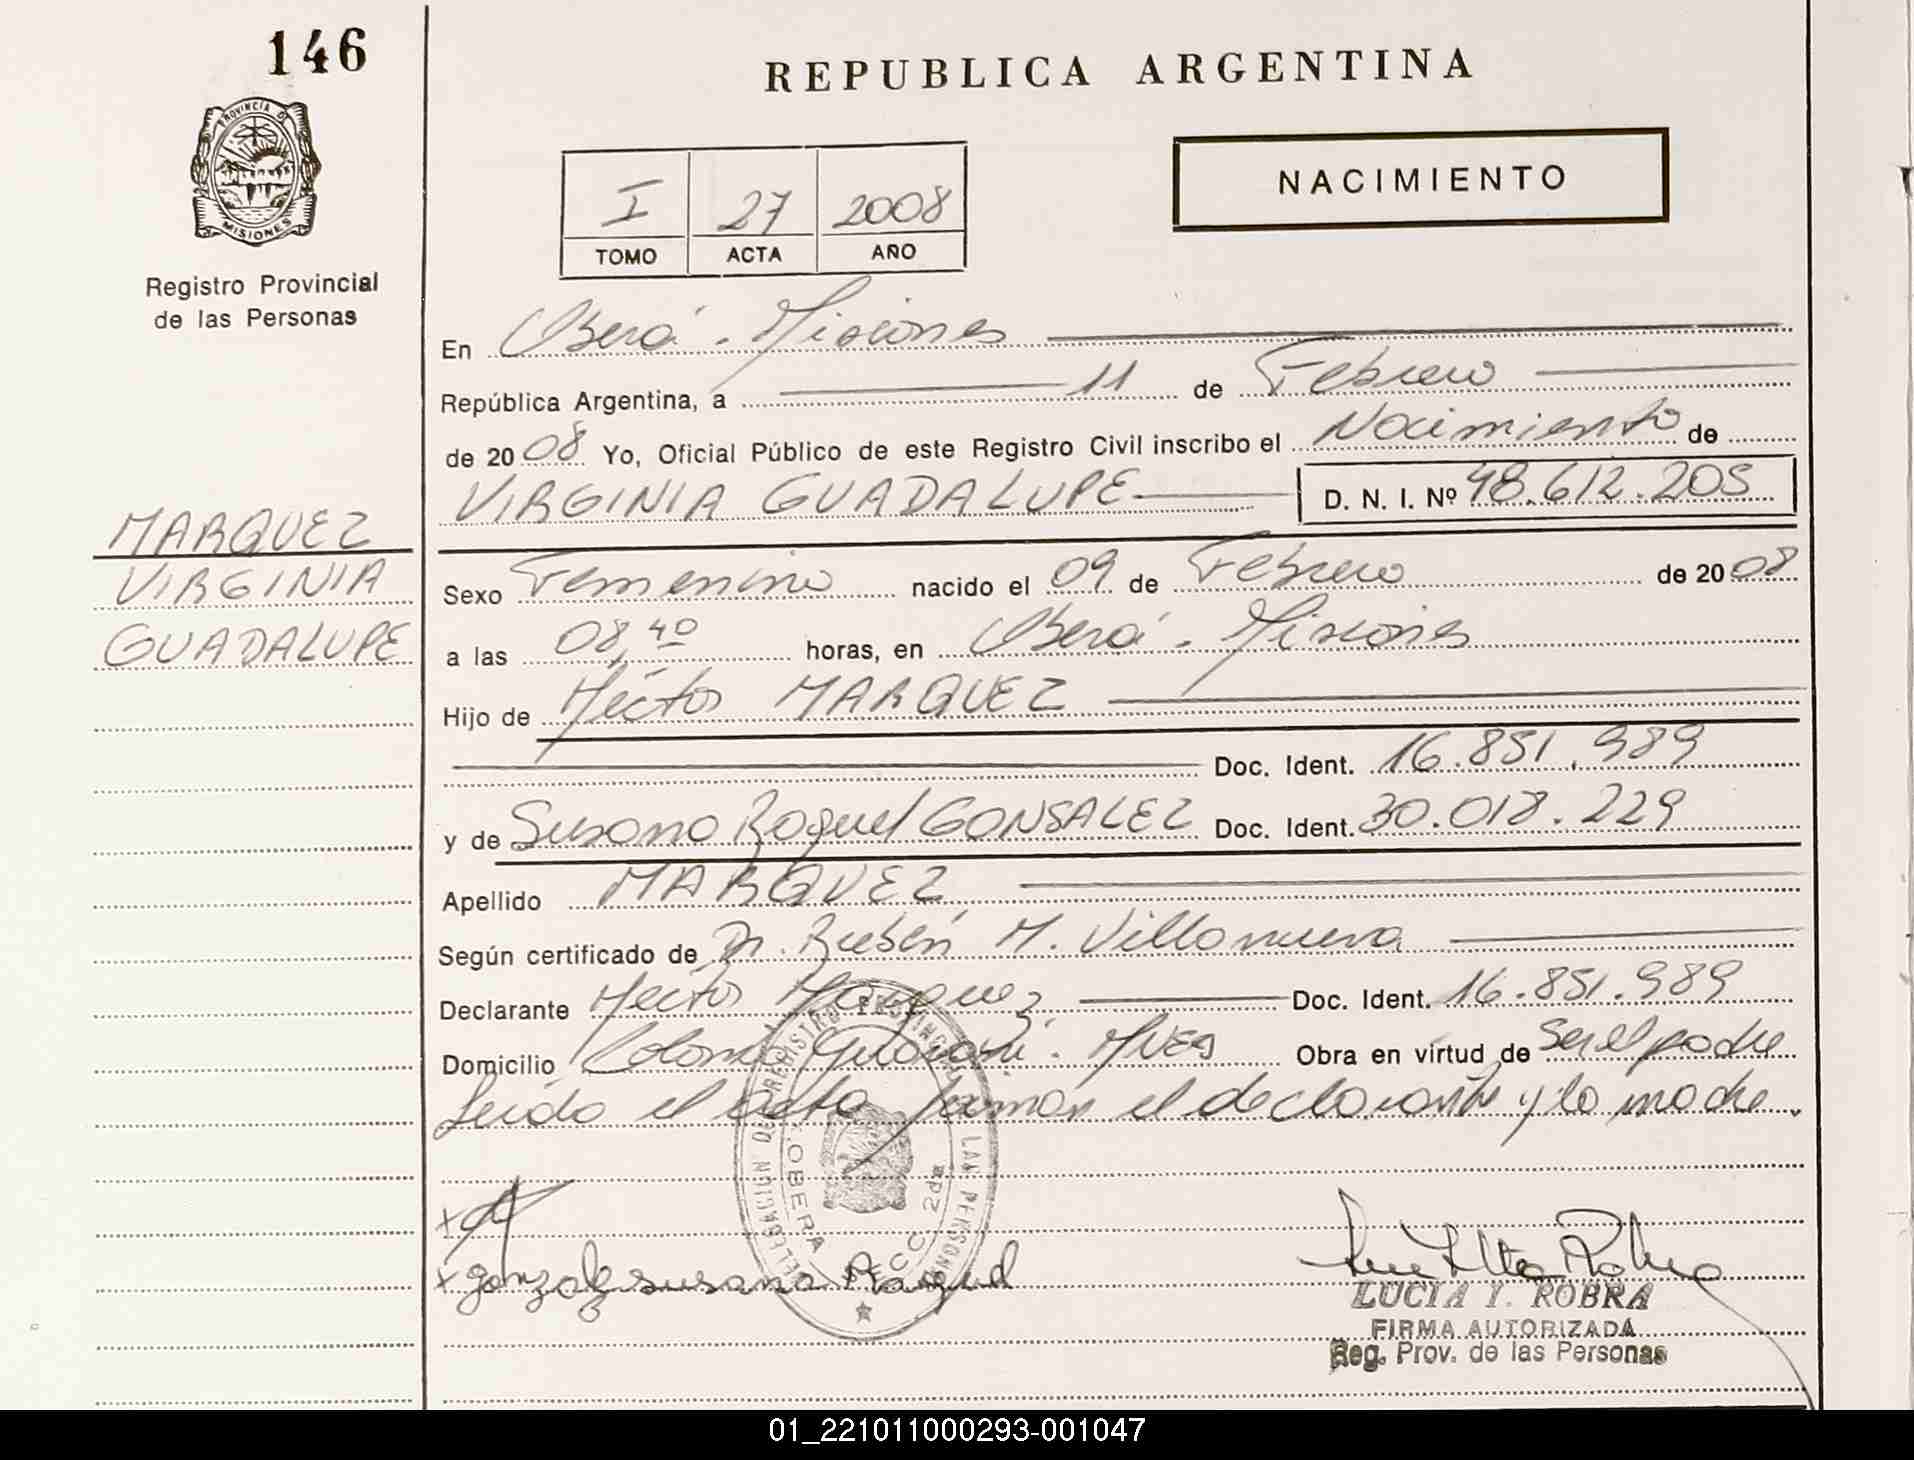 146
REPUBLICA ARGENTINA
PROVINCIA DE
MISIONES
Registro Provincial
de las Personas
NACIMIENTO
I 27 2008
TOMO ACTA AÑO
En Oberá - Misiones
República Argentina, a 11 de Febrero
de 2008 Yo, Oficial Público de este Registro Civil inscribo el Nacimiento de
VIRGINIA GUADALUPE D. N. I. Nº 48.612.205
MARQUEZ
VIRGINIA
GUADALUPE
Sexo Femenino nacido el 09 de Febrero de 2008
a las 08,40 horas, en Oberá - Misiones
Hijo de Héctor MARQUEZ
Doc. Ident. 16.851.989
y de Susana Raquel GONSALEZ Doc. Ident. 30.018.229
Apellido MARQUEZ
Según certificado de Dr. Rubén M. Villanueva
Declarante Héctor Márquez Doc. Ident. 16.851.989
Domicilio Colonia Guaraní. Mnes Obra en virtud de Ser el padre
Leída el acta firman el declarante y la madre.
DELEGACION DEL REGISTRO PROVINCIAL DE LAS PERSONAS
OBERA SECC. 2da
x
x gonzalez susana Raquel
LUCIA Y. ROBRA
FIRMA AUTORIZADA
Reg. Prov. de las Personas
01_221011000293-001047